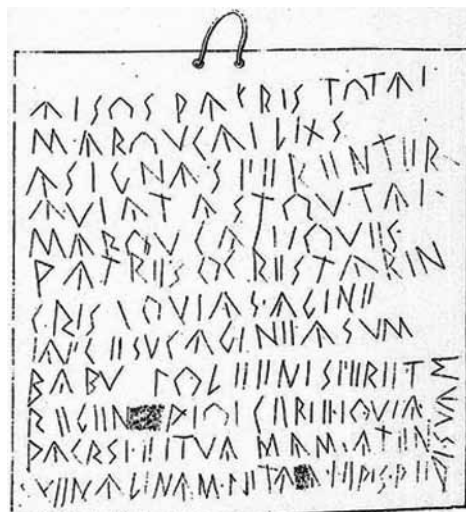 AISOS PACRIS TOTAI
MAROVCAI LIXS
ASIGNAS FERENTER
AVIATAS TOVTAI
MAROVCAI IOVES
PATRES OCRES TARIN
CRIS IOVIAS AGINE
IAFC ESVC AGINE ASVM
BABV POLEENIS FERET
REGEN PIOI CERIE IOVIA
PACRSI EITVAM AMATEN
VENALINAM NITA A NIPIS PEDI SVAM